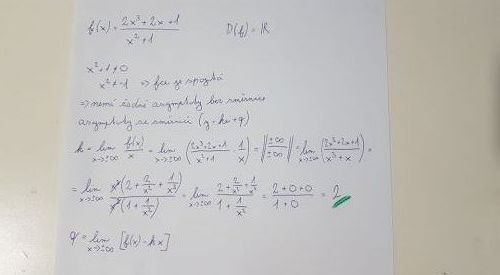 f(x) = (2x³+2x+1)/(x²+1)   D(f) = ℝ
x²+1≠0
x²≠-1 ⇒ fce je spojitá
⇒ nemá žádné asymptoty bez směrnice
asymptoty se směrnicí (y=kx+q)
k = lim x→±∞ f(x)/x = lim x→±∞ ((2x³+2x+1)/(x²+1) · 1/x) = ||±∞/±∞|| = lim x→±∞ (2x³+2x+1)/(x³+x) =
= lim x→±∞ x³(2+2/x²+1/x³)/x³(1+1/x²) = lim x→±∞ (2+2/x²+1/x³)/(1+1/x²) = (2+0+0)/(1+0) = 2
q = lim x→±∞ [f(x)-kx]